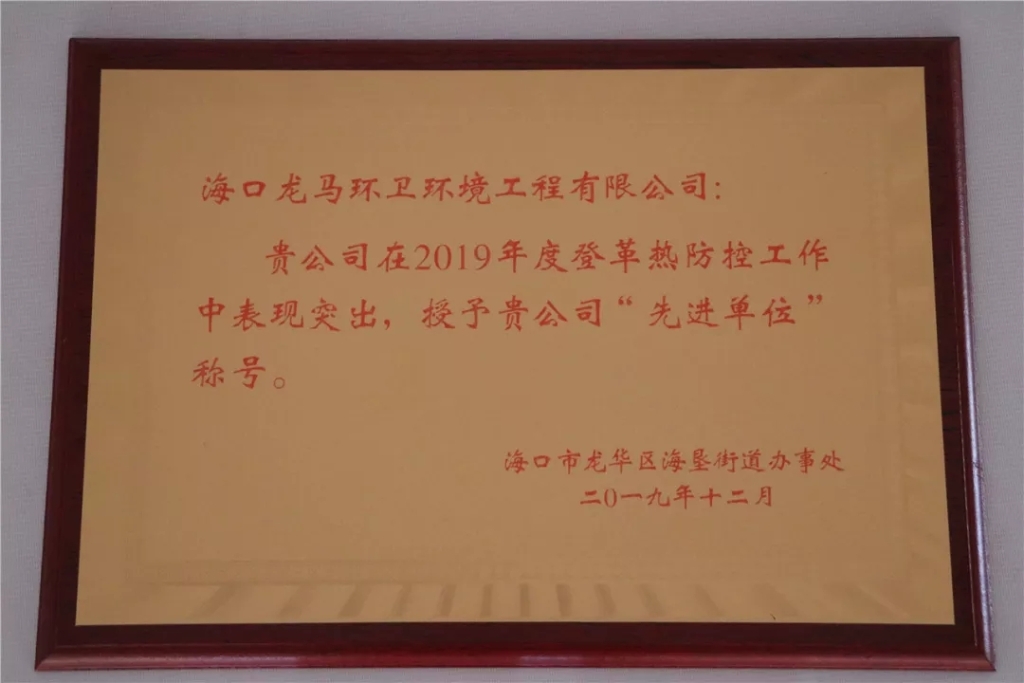 海口龙马环卫环境工程有限公司：
贵公司在2019年度登革热防控工作
中表现突出，授予贵公司“先进单位”
称号。
海口市龙华区海垦街道办事处
二0一九年十二月